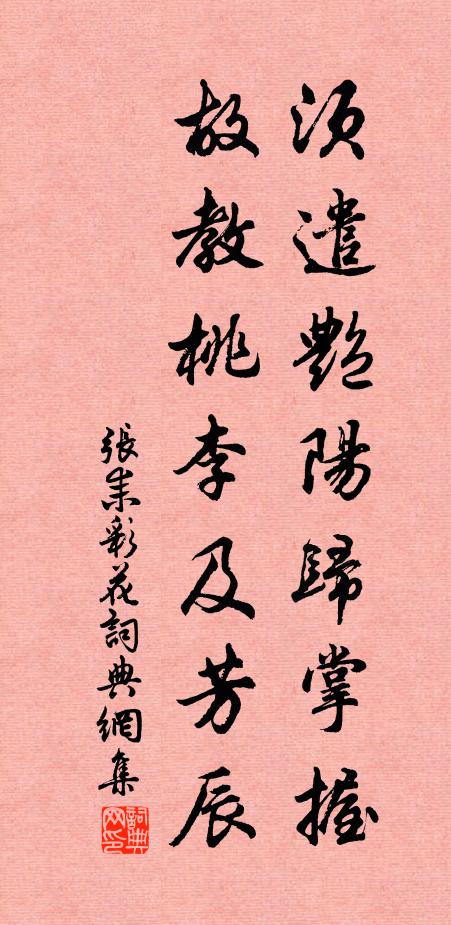 須遣艷陽歸掌握
故教桃李及芳辰
張耒彩花詞典網集
詞典网印